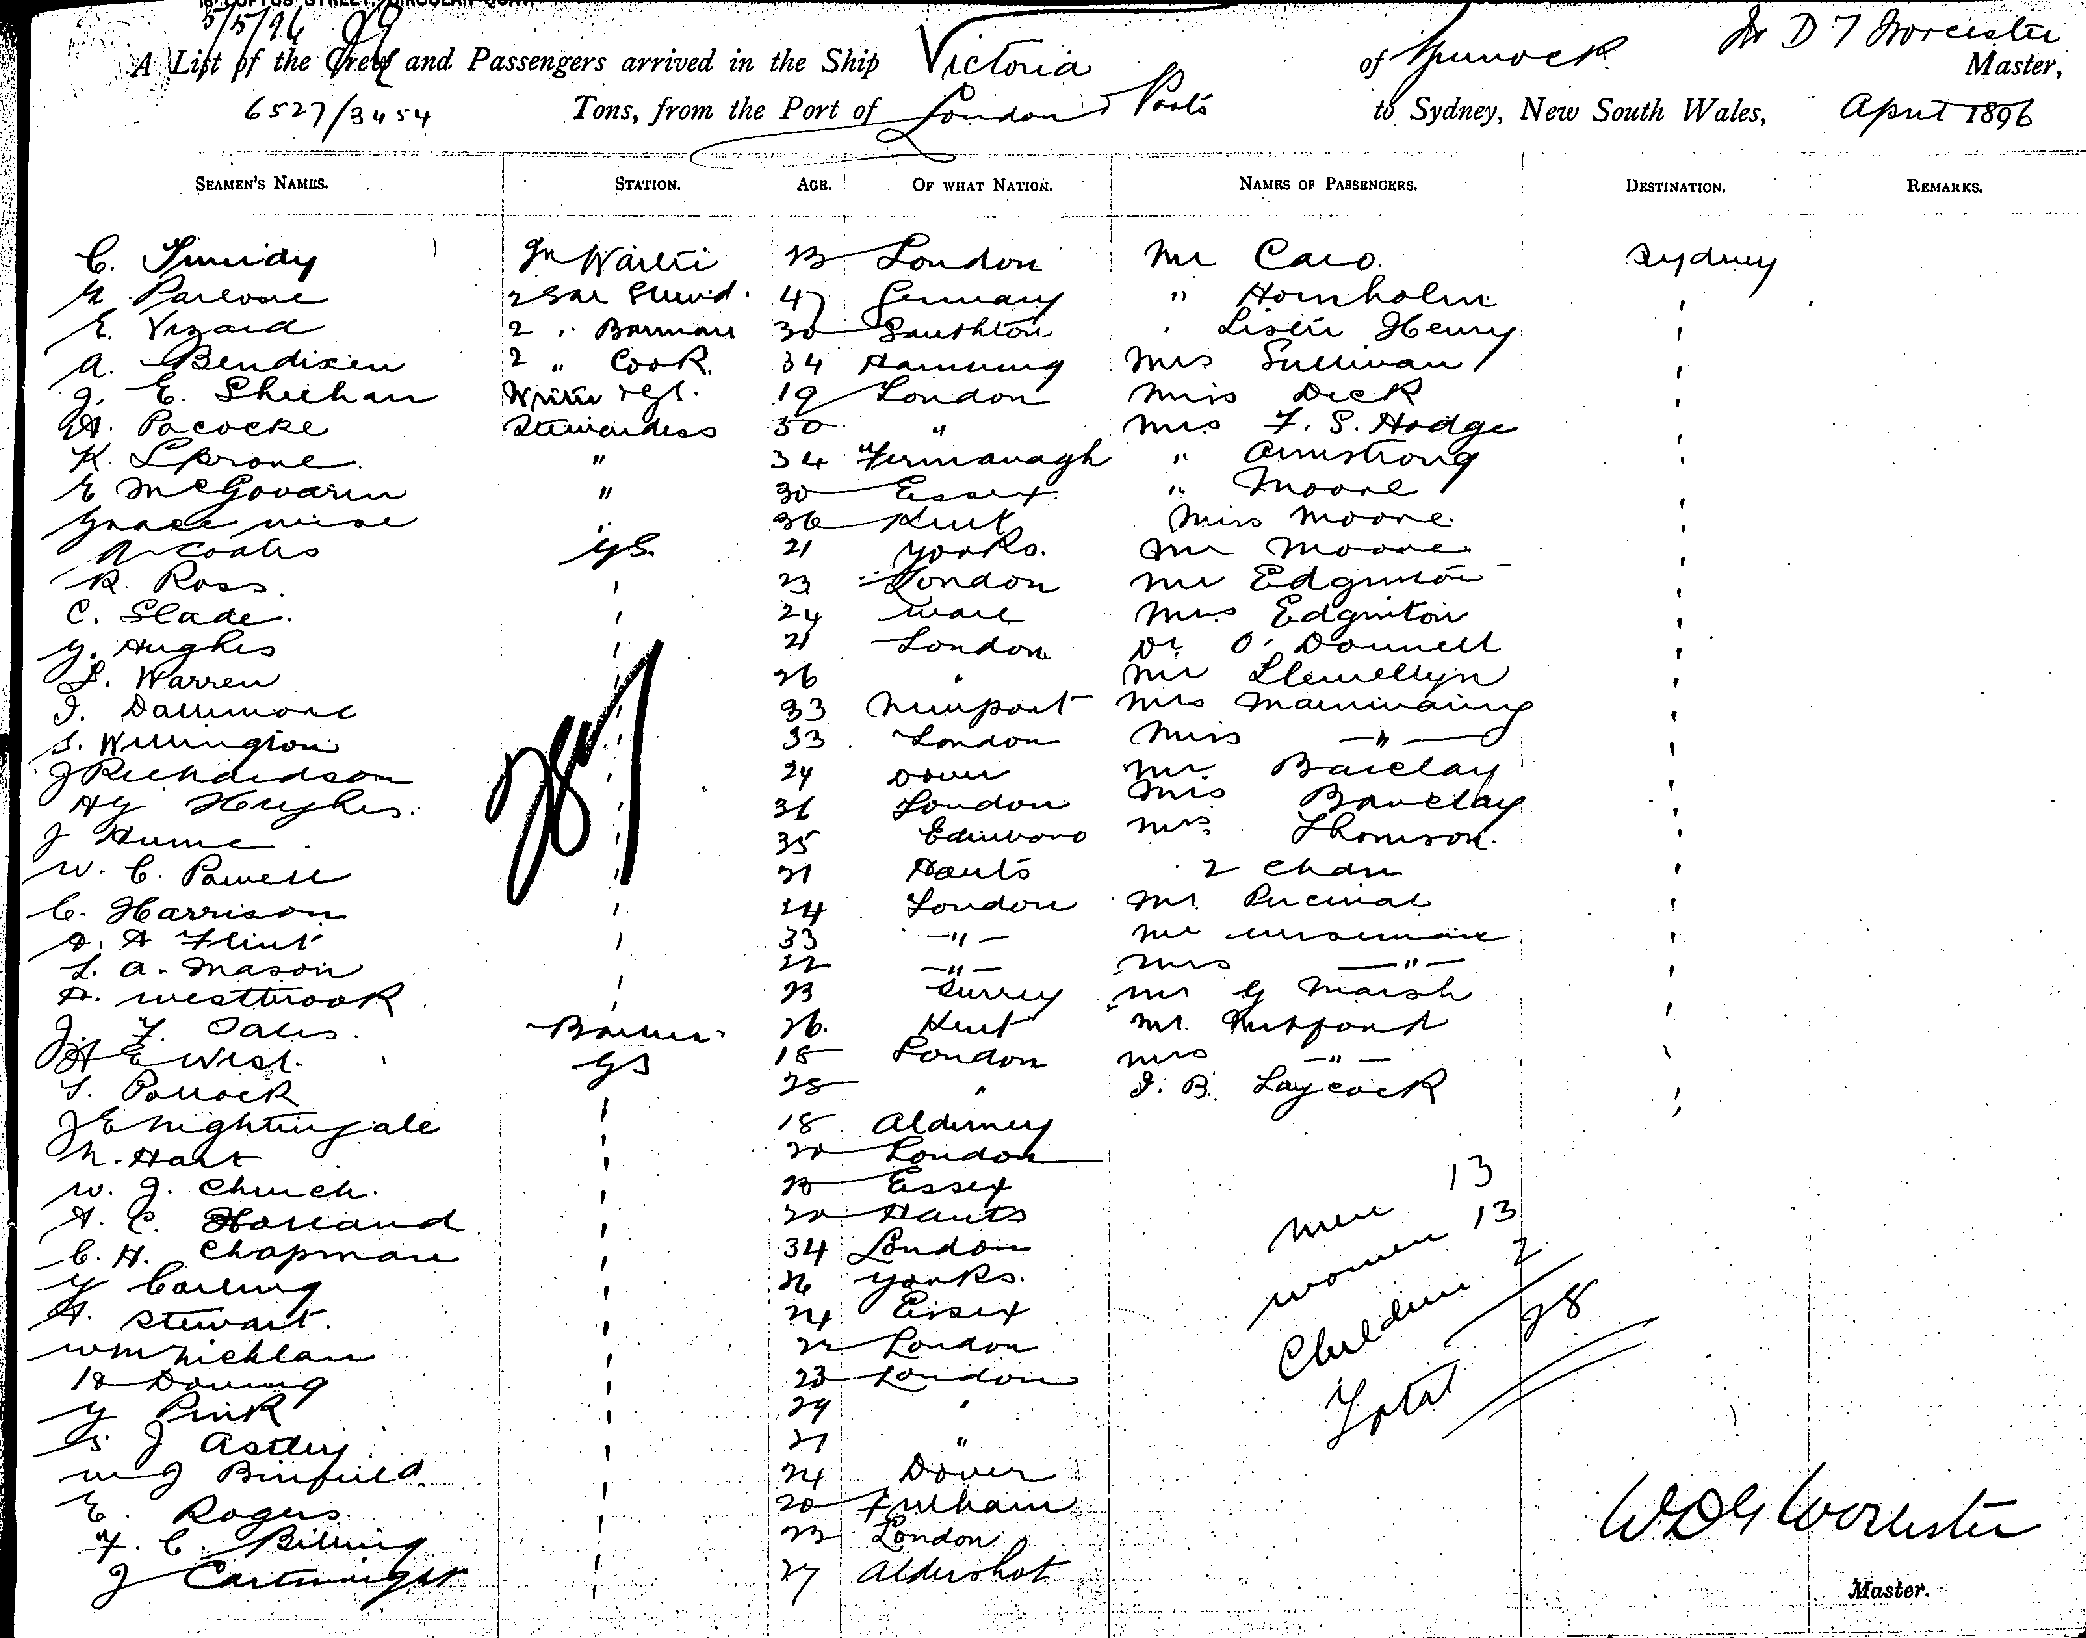 5/5/96
A List of the Crew and Passengers arrived in the Ship Victoria of Greenock W D G Worcester Master,
6527/3454 Tons, from the Port of London & Ports to Sydney, New South Wales, April 1896
SEAMEN'S NAMES. STATION. AGE. OF WHAT NATION. NAMES OF PASSENGERS. DESTINATION. REMARKS.
C. 23 London Mr Caro. Sydney
47 Germany " Hornholm
E. Vizard 2 " Barman 30 Southton Henry
A. Bendixen 2 " Cook 34 Mrs Sullivan
J. E. Sheehan 19 London Miss Dick
A. Pococke Stewardess 30 " Mrs F. S. Hodge
K. " 34 Fermanagh " Armstrong
E McGovarin " 30 Essex " Moore
Grace " 36 Kent Miss Moore
Coates GS. 21 Yorks. Mr Moore
R. Ross. ' 23 London Mr Edginton
C. Slade. ' 24 Ware Mrs Edginton
G. Hughes ' 21 London Dr O'Donnell
L. Warren ' 26 " Mr Llewellyn
J. Dallimore ' 33 Newport Mrs Mainwaring
S. Willington ' 33 London Miss — " —
J Richardson ' 24 Dover Mr Barclay
Hy Hughes. ' 31 London Miss Barclay
J Hume ' 35 Mrs Thomson.
W. C. Powell ' 21 Hants 2 Chdn
C. Harrison ' 24 London Mr Percival
A. A Flint ' 33 — " — Mr
L. A. Mason ' 22 — " — Mrs — " —
A. Westbrook ' 23 Surrey Mr G Marsh
J. F. Oates. 26. Kent Mr.
A E West. GS 18 London Mrs — " —
S. Pollock ' 28 " J. B. Laycock
J E Nightingale ' 18 Alderney
N. Hart ' 20 London
W. J. Church. ' 23 Essex
A. C. Holland ' 20 Hants
C. H. Chapman ' 34 London
G Carling ' 26 Yorks.
A. Stewart. ' 24 Essex
Wm ' 22 London
' 23 London
G Pink ' 29 "
J Astley ' 21 "
W J Binfield ' 24 Dover
E. Rogers ' 20 Fulham
F. C. Billing ' 23 London
J Cartwright ' 27 Aldershot
Men 13
Women 13
Children 2
Total 28
W D G Worcester
Master.